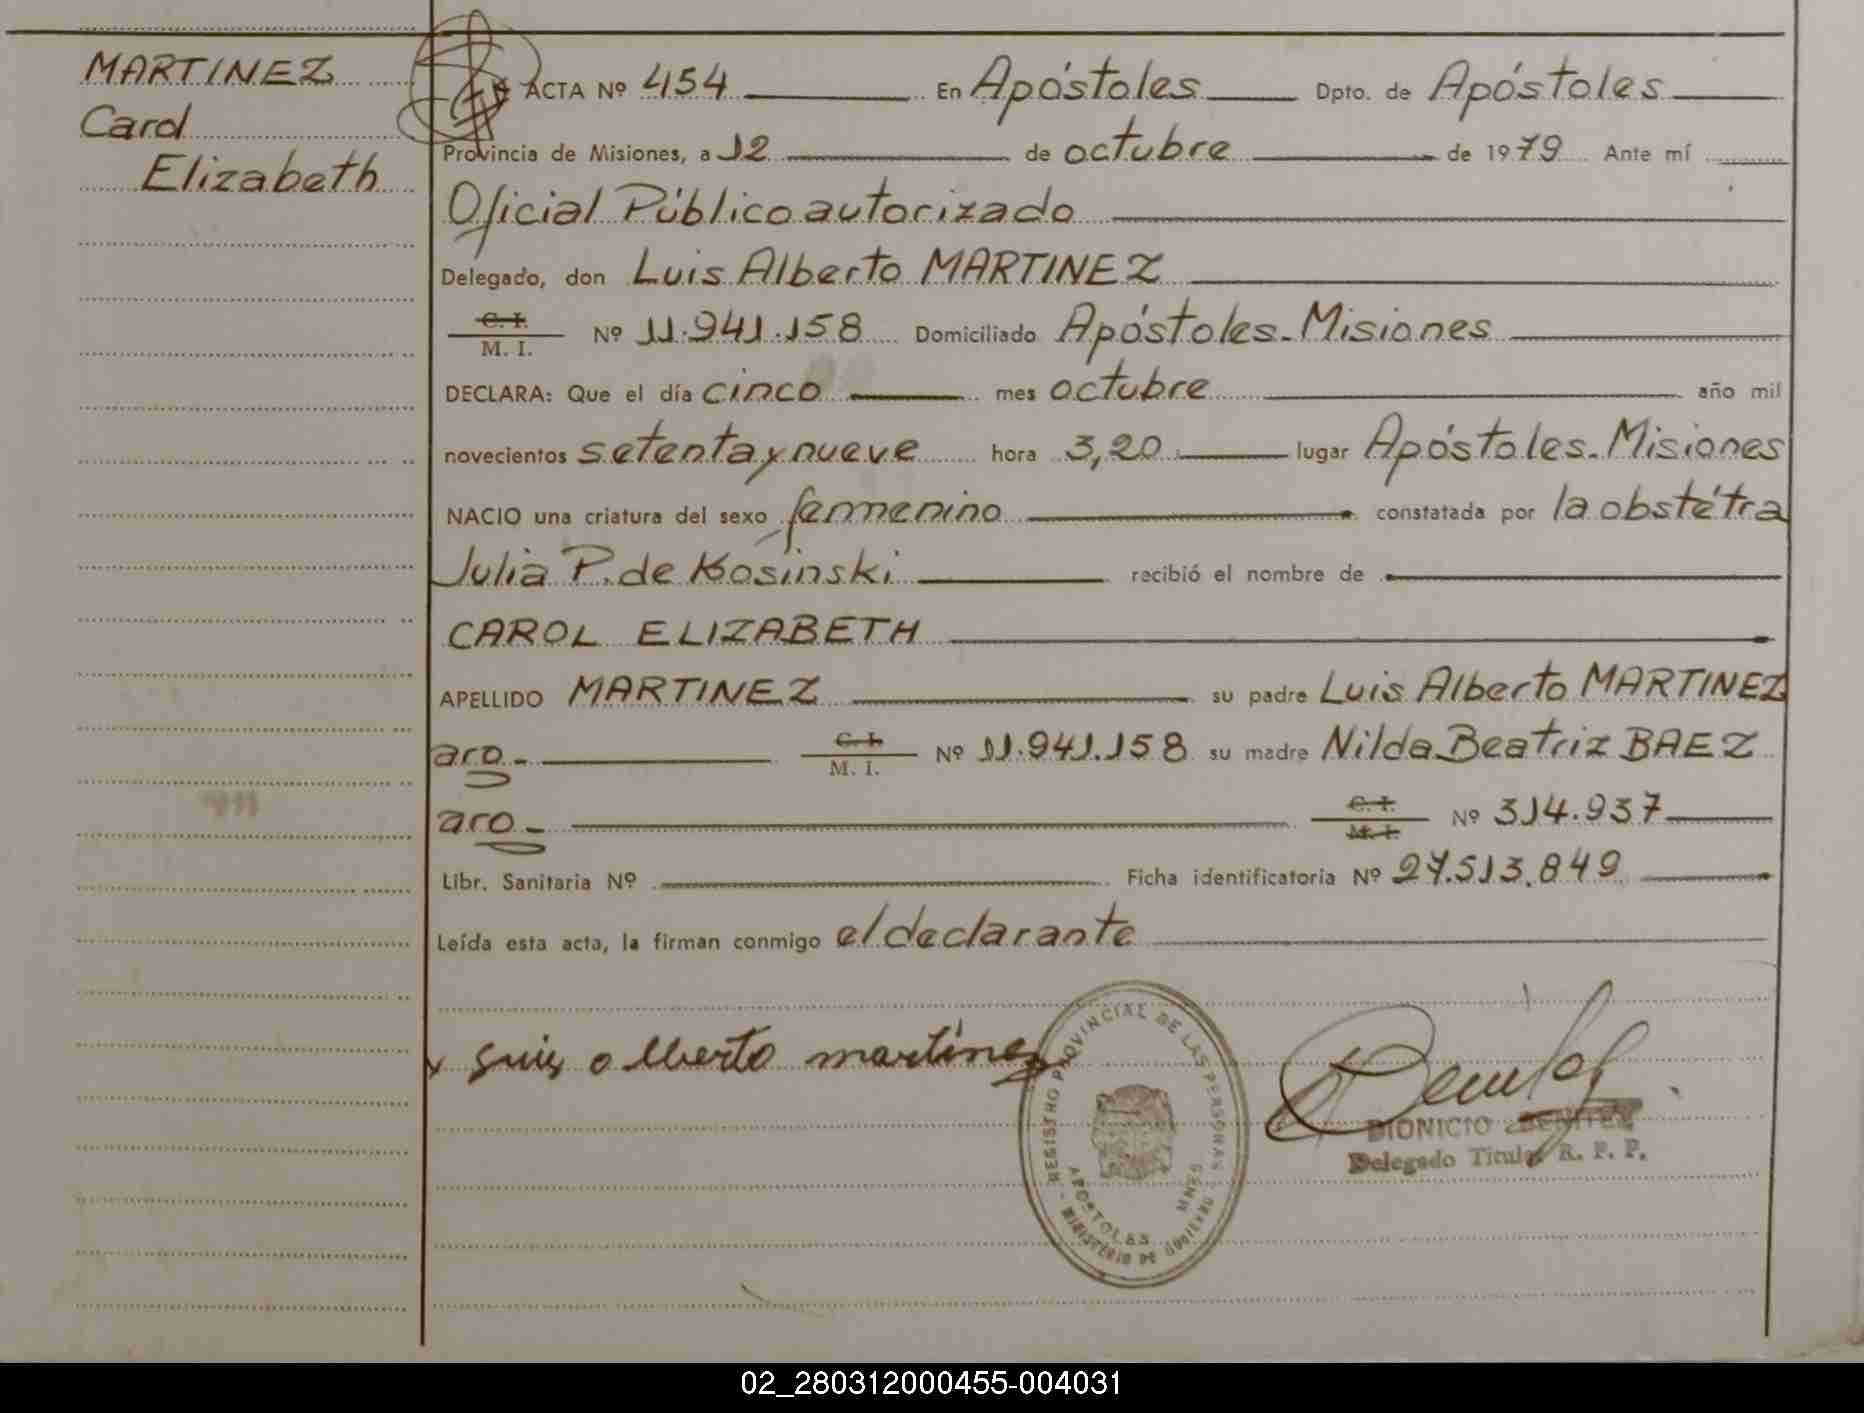 MARTINEZ
Carol
Elizabeth
ACTA Nº 454 En Apóstoles Dpto. de Apóstoles
Provincia de Misiones, a 12 de octubre de 1979 Ante mí
Oficial Público autorizado
Delegado, don Luis Alberto MARTINEZ
C. I.
M. I. Nº 11.941.158 Domiciliado Apóstoles-Misiones
DECLARA: Que el día cinco mes octubre año mil
novecientos setenta y nueve hora 3,20 lugar Apóstoles-Misiones
NACIO una criatura del sexo femenino constatada por la obstétra
Julia P. de Kosinski recibió el nombre de
CAROL ELIZABETH
APELLIDO MARTINEZ su padre Luis Alberto MARTINEZ
aro- C. I.
M. I. Nº 11.941.158 su madre Nilda Beatriz BAEZ
aro- C. I.
M. I. Nº 314.937
Libr. Sanitaria Nº Ficha identificatoria Nº 27.513.849
Leída esta acta, la firman conmigo el declarante
x Luis alberto martinez
REGISTRO PROVINCIAL DE LAS PERSONAS - MINISTERIO DE GOBIERNO
APOSTOLES MNES
DIONICIO BENITEZ
Delegado Titular R. P. P.
02_280312000455-004031